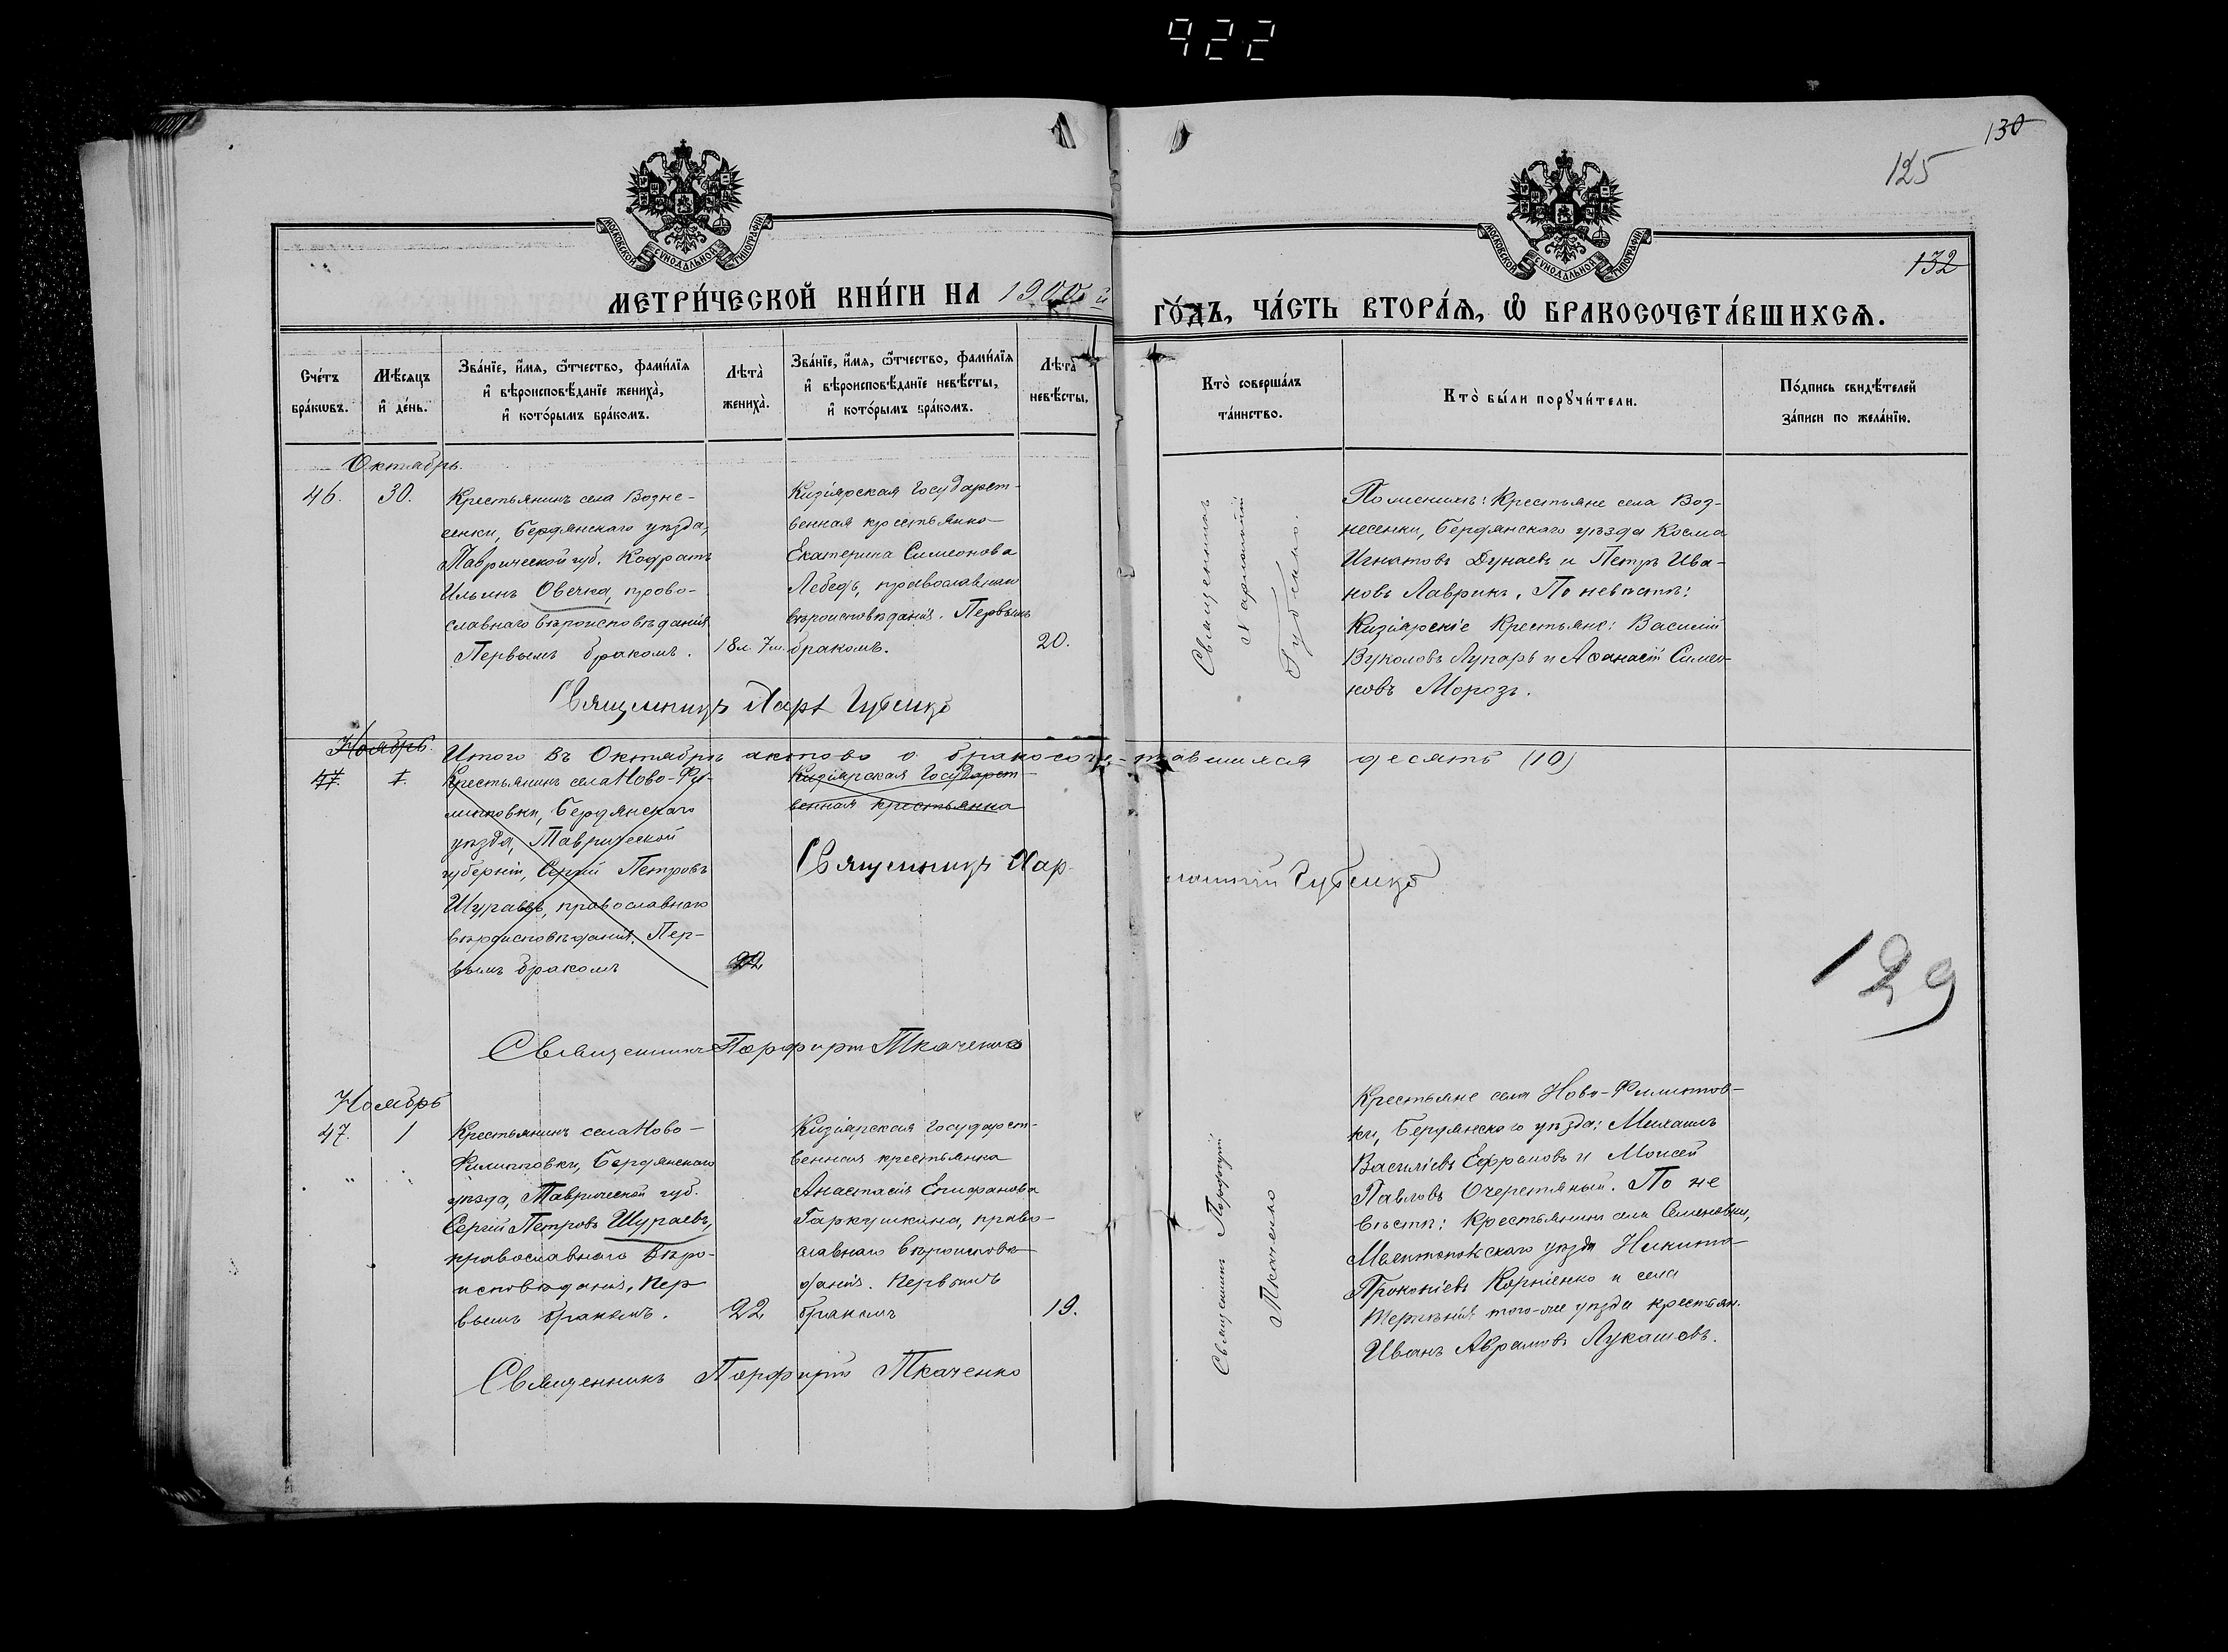 922
130
125
132
МОСКОВСКОЙ СУНОДАЛЬНОЙ ТИПОГРАФІИ
МОСКОВСКОЙ СУНОДАЛЬНОЙ ТИПОГРАФІИ
МЕТРИ́ЧЕСКОЙ КНИ́ГИ НА 1900 й
ГО́ДЪ, ЧА́СТЬ ВТОРА́Ѧ, Ѽ БРАКОСОЧЕТА́ВШИХСѦ.
Сче́тъ бра́кѡвъ.
Мѣ́сѧцъ и҆ де́нь.
Зва́нїе, и҆́мѧ, ѻ҆́тчество, фами́лїѧ
и҆ вѣроисповѣ́данїе жениха̀,
и҆ кото́рымъ бра́комъ.
Лѣта̀ жениха̀.
Зва́нїе, и҆́мѧ, ѻ҆́тчество, фами́лїѧ
и҆ вѣроисповѣ́данїе невѣ́сты,
и҆ кото́рымъ бра́комъ.
Лѣта̀ невѣ́сты.
Кто̀ соверша́лъ
та́инство.
Кто̀ бы́ли порꙋчи́тели.
По́дпись свидѣ́телей
за́писи по жела́нїю.
Октябрь.
46.
30.
Крестьянинъ села Возне-
сенки, Бердянскаго уѣзда,
Таврической губ. Кодратъ
Ильинъ Овечка, право-
славнаго вѣроисповѣданія
Первымъ бракомъ.
18 л. 7 м.
Кизіярская Государст-
венная крестьянка
Екатерина Симеонова
Лебедь, православнаго
вѣроисповѣданія. Первымъ
бракомъ.
20.
Священникъ
Харлампій
Губенко.
По женихѣ: Крестьяне села Воз-
несенки, Бердянскаго уѣзда Косма
Игнатовъ Дунаевъ и Петръ Ива-
новъ Лаврикъ. По невѣстѣ:
Кизіярскіе Крестьяне: Василій
Вуколовъ Лупарь и Аѳанасій Симео-
новъ Морозъ.
Священникъ Харл Губенко
Ноябрь.
Итого въ Октябрѣ актовъ о бракосоче-тавшихся десять (10)
47.
1.
Крестьянинъ села Ново-Фи-
липповки, Бердянскаго
уѣзда, Таврической
губерніи, Сергій Петровъ
Шураевъ, православнаго
вѣроисповѣданія. Пер-
вымъ бракомъ
22
Кизіярская Государст-
венная крестьянка
Священникъ Хар-
лампій Губенко
129
Священникъ Порфирій Ткаченко
Ноябрь
47.
1
Крестьянинъ села Ново-
Филипповки, Бердянскаго
уѣзда, Таврической губ.
Сергій Петровъ Шураевъ,
православнаго вѣро-
исповѣданія, пер-
вымъ бракомъ.
22
Кизіярская Государст-
венная крестьянка
Анастасія Епифанова
Гаркушкина, право-
славнаго вѣроисповѣ-
данія. Первымъ
бракомъ
19.
Священникъ Порфирій
Ткаченко
Крестьяне села Ново-Филиппов-
ки, Бердянскаго уѣзда: Михаилъ
Василіевъ Ефремовъ и Моисей
Павловъ Очеретяный. По не
вѣстѣ: Крестьянинъ села Семеновки,
Мелитопольскаго уѣзда Никита
Прокопіевъ Корніенко и села
Терпѣнія того-же уѣзда крестьян.
Иванъ Аврамовъ Лукашовъ.
Священникъ Порфирій Ткаченко